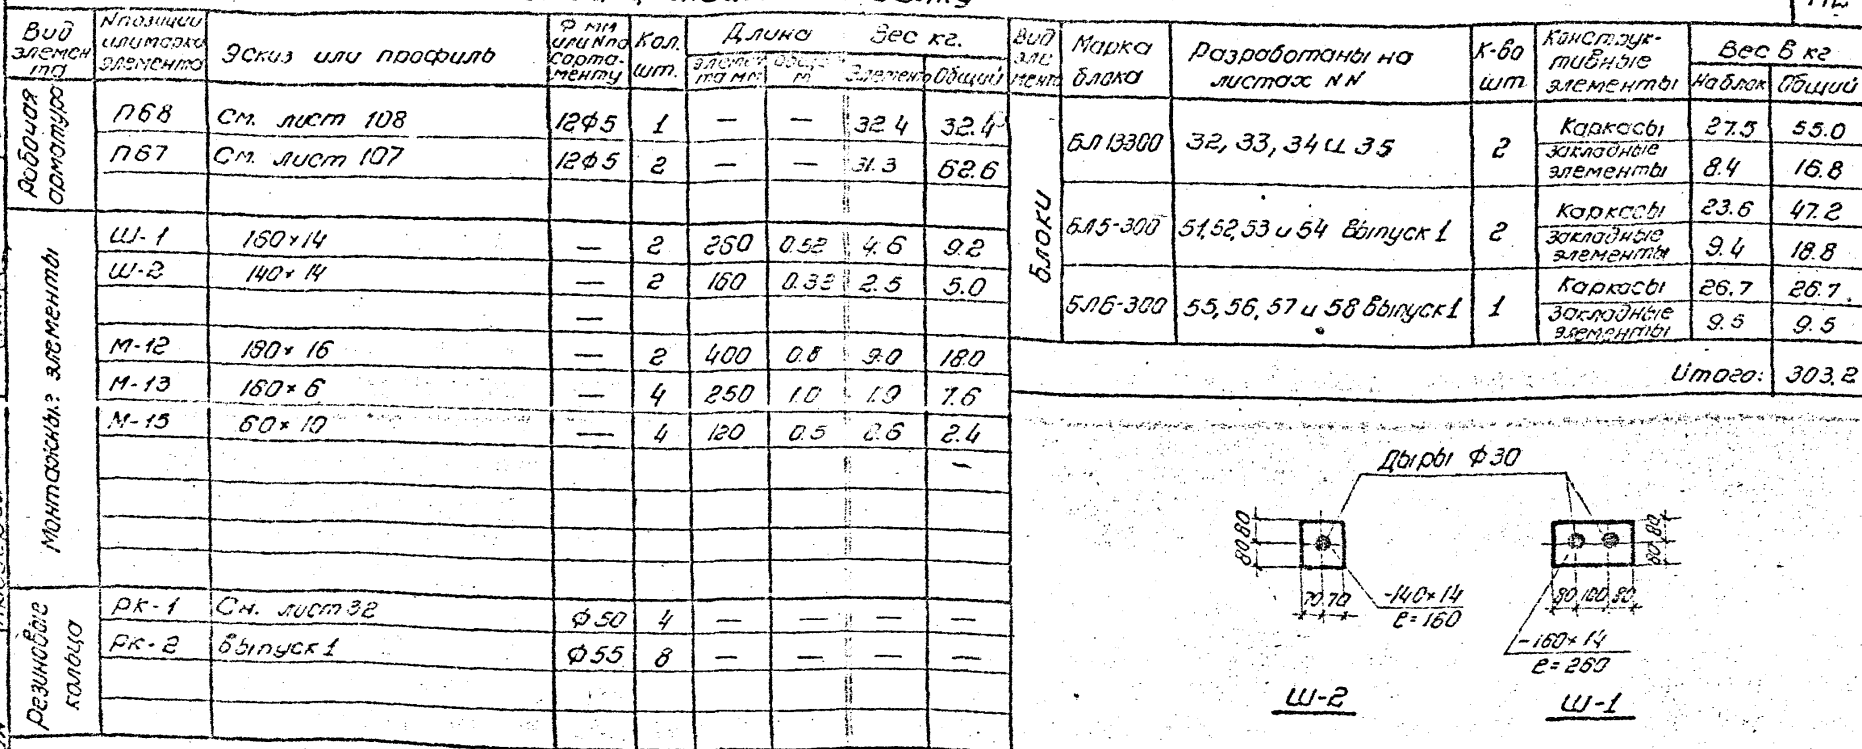 Вид элемен та | N позиции или марка элемента | Эскиз или профиль | Ф мм или N по сорта-менту | Кол. шт. | Длина | Вес кг.
элемен та мм | общая м | Элемент | Общий
Рабочая арматура
П68 | См. лист 108 | 12Ф5 | 1 | — | — | 32.4 | 32.4
П67 | См. лист 107 | 12Ф5 | 2 | — | — | 31.3 | 62.6
Монтажны. элементы
Ш-1 | 160×14 | — | 2 | 260 | 0.52 | 4.6 | 9.2
Ш-2 | 140×14 | — | 2 | 160 | 0.32 | 2.5 | 5.0
—
М-12 | 180×16 | — | 2 | 400 | 0.8 | 9.0 | 18.0
М-13 | 160×6 | — | 4 | 250 | 1.0 | 1.9 | 7.6
М-15 | 60×10 | — | 4 | 120 | 0.5 | 0.6 | 2.4
Резиновые кольца
РК-1 | См. лист 32 | Ф50 | 4 | — | — | — | —
РК-2 | Выпуск 1 | Ф55 | 8 | — | — | — | —
Вид эле мента | Марка блока | Разработаны на листах NN | К-во шт | Конструк-тивные элементы | Вес в кг
На блок | Общий
Блоки
БЛ13300 | 32, 33, 34 и 35 | 2 | Каркасы | 27.5 | 55.0
Закладные элементы | 8.4 | 16.8
БЛ5-300 | 51,52,53 и 54 Выпуск 1 | 2 | Каркасы | 23.6 | 47.2
Закладные элементы | 9.4 | 18.8
БЛ6-300 | 55, 56, 57 и 58 Выпуск 1 | 1 | Каркасы | 26.7 | 26.7
Закладные элементы | 9.5 | 9.5
Итого: 303.2
Дыры Ф30
80 80
70 70
-140×14
ℓ=160
Ш-2
80 80
80 100 80
-160×14
ℓ=260
Ш-1